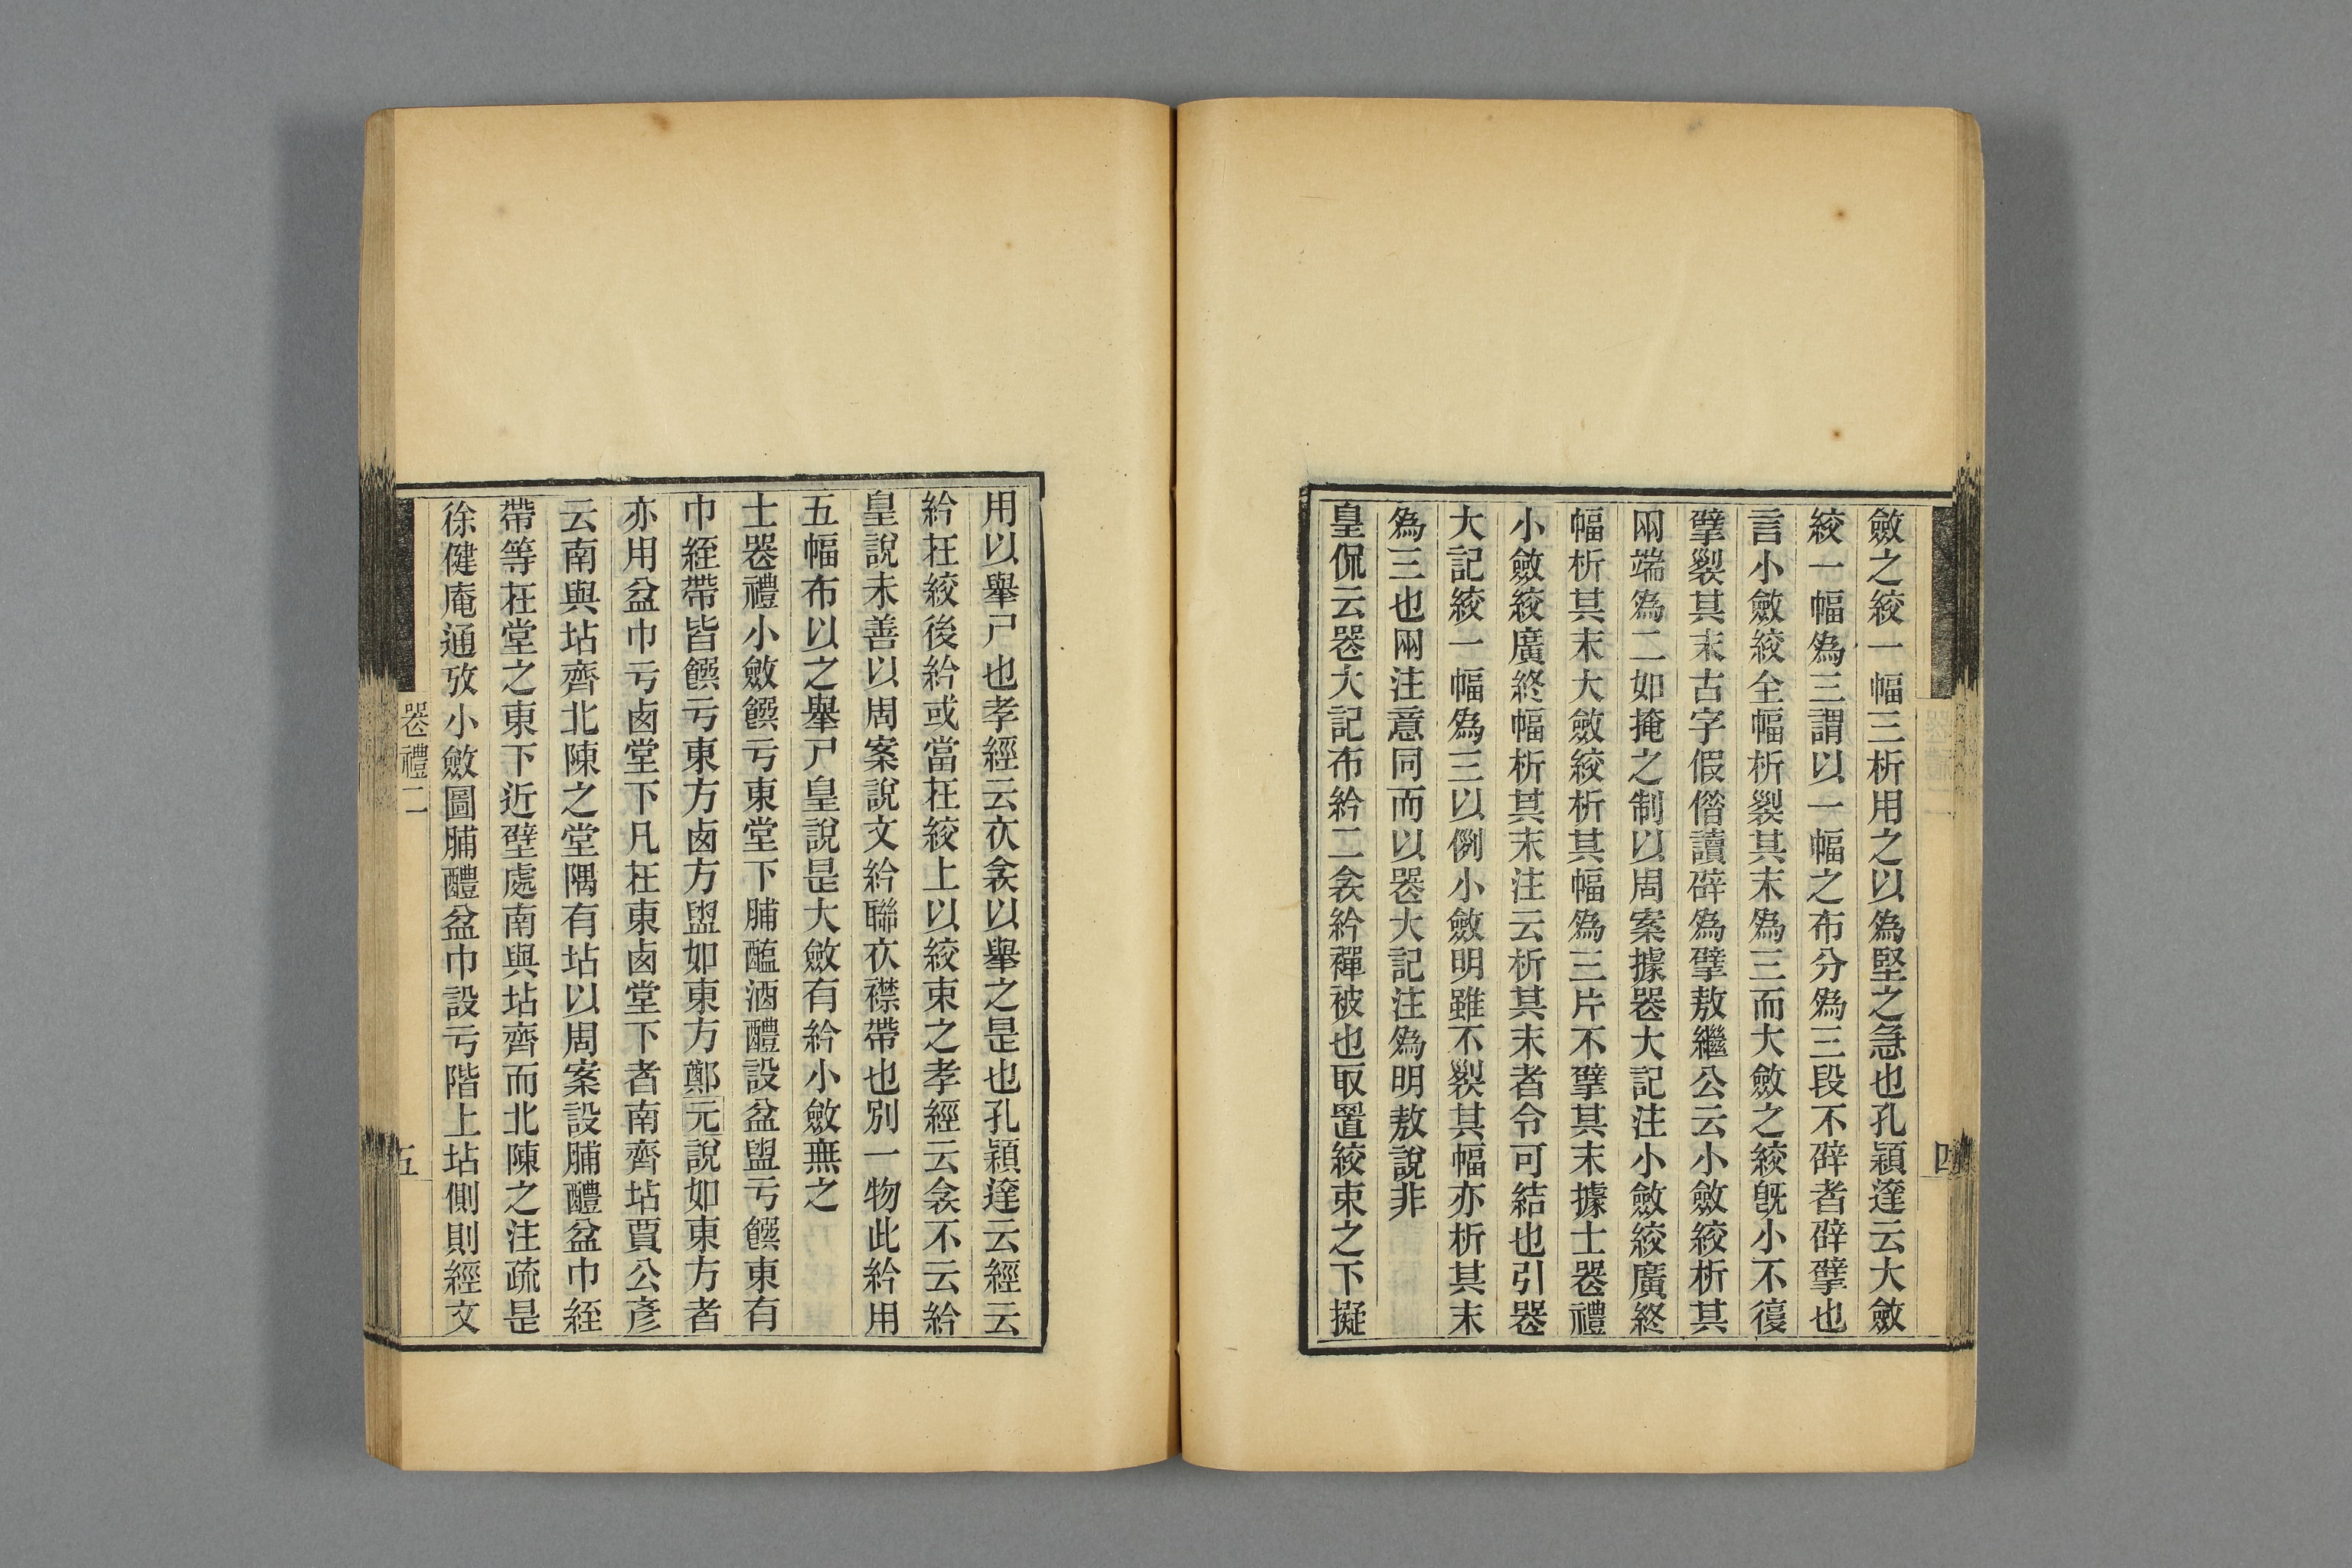 斂之絞一幅三析用之以爲堅之急也孔穎達云大斂
絞一幅爲三謂以一幅之布分爲三段不辟者辟擘也
言小斂絞全幅析裂其末爲三而大斂之絞旣小不復
擘裂其末古字假偺讀辟爲擘敖繼公云小斂絞析其
兩端爲二如掩之制以周案據喪大記注小斂絞廣終
幅析其末大斂絞析其幅爲三片不擘其末據士喪禮
小斂絞廣終幅析其末注云析其末者令可結也引喪
大記絞一幅爲三以例小斂明雖不裂其幅亦析其末
爲三也兩注意同而以喪大記注爲明敖說非
皇侃云喪大記布紟二衾紟禪被也取置絞束之下擬
用以舉尸也孝經云衣衾以舉之是也孔穎達云經云
紟在絞後紟或當在絞上以絞束之孝經云衾不云紟
皇說未善以周案說文紟聯衣襟帶也別一物此紟用
五幅布以之舉尸皇說是大斂有紟小斂無之
士喪禮小斂饌亏東堂下脯醢酒醴設盆盥亏饌東有
巾絰帶皆饌亏東方鹵方盥如東方鄭元說如東方者
亦用盆巾亏鹵堂下凡在東鹵堂下者南齊坫賈公彥
云南與坫齊北陳之堂隅有坫以周案設脯醴盆巾絰
帶等在堂之東下近壁處南與坫齊而北陳之注疏是
徐健庵通攷小斂圖脯醴盆巾設亏階上坫側則經文
喪禮二
五
四